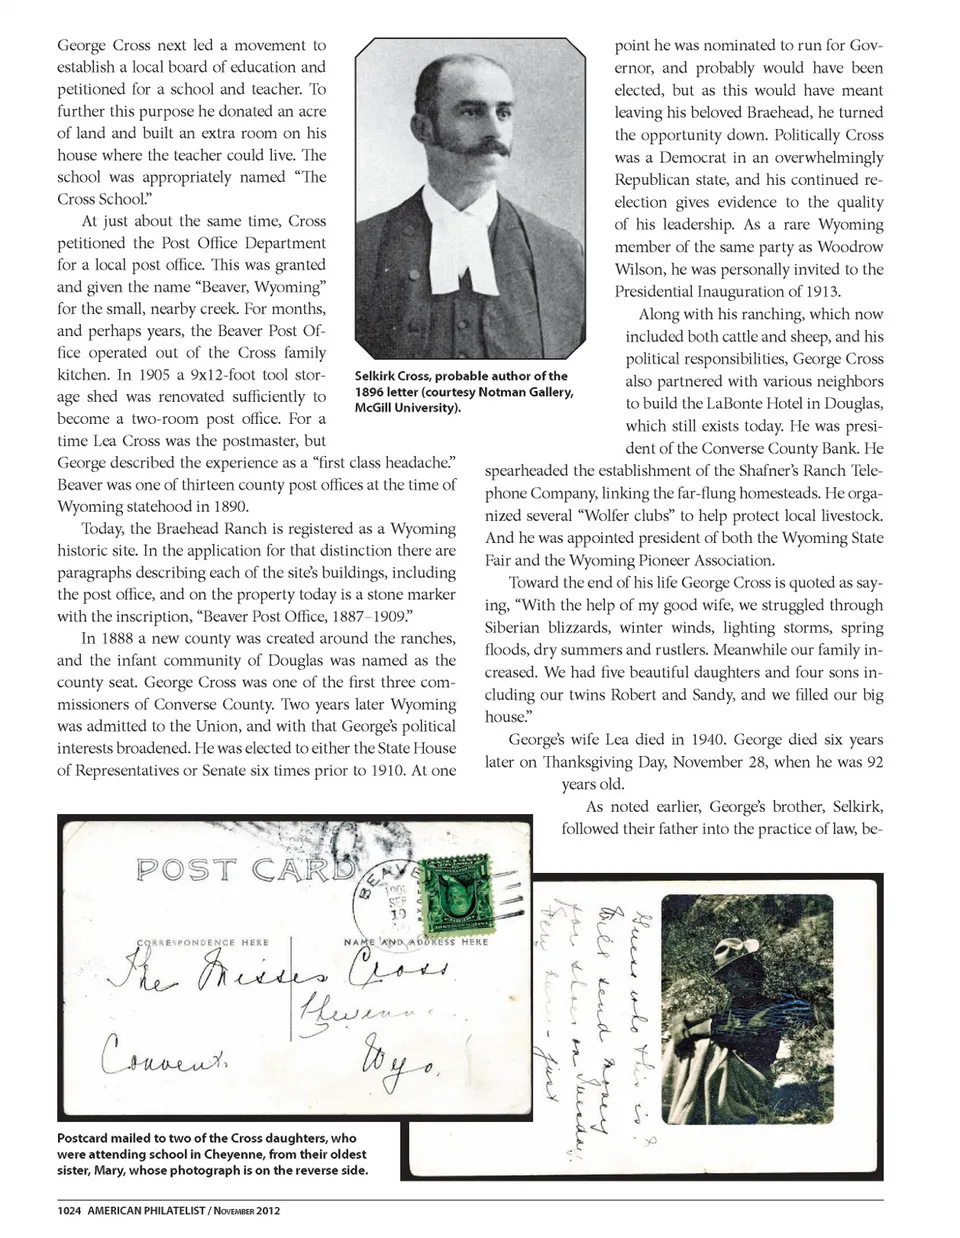 George Cross next led a movement to
establish a local board of education and
petitioned for a school and teacher. To
further this purpose he donated an acre
of land and built an extra room on his
house where the teacher could live. The
school was appropriately named “The
Cross School.”
At just about the same time, Cross
petitioned the Post Office Department
for a local post office. This was granted
and given the name “Beaver, Wyoming”
for the small, nearby creek. For months,
and perhaps years, the Beaver Post Of-
fice operated out of the Cross family
kitchen. In 1905 a 9x12-foot tool stor-
age shed was renovated sufficiently to
become a two-room post office. For a
time Lea Cross was the postmaster, but
George described the experience as a “first class headache.”
Beaver was one of thirteen county post offices at the time of
Wyoming statehood in 1890.
Today, the Braehead Ranch is registered as a Wyoming
historic site. In the application for that distinction there are
paragraphs describing each of the site’s buildings, including
the post office, and on the property today is a stone marker
with the inscription, “Beaver Post Office, 1887–1909.”
In 1888 a new county was created around the ranches,
and the infant community of Douglas was named as the
county seat. George Cross was one of the first three com-
missioners of Converse County. Two years later Wyoming
was admitted to the Union, and with that George’s political
interests broadened. He was elected to either the State House
of Representatives or Senate six times prior to 1910. At one
Selkirk Cross, probable author of the
1896 letter (courtesy Notman Gallery,
McGill University).
point he was nominated to run for Gov-
ernor, and probably would have been
elected, but as this would have meant
leaving his beloved Braehead, he turned
the opportunity down. Politically Cross
was a Democrat in an overwhelmingly
Republican state, and his continued re-
election gives evidence to the quality
of his leadership. As a rare Wyoming
member of the same party as Woodrow
Wilson, he was personally invited to the
Presidential Inauguration of 1913.
Along with his ranching, which now
included both cattle and sheep, and his
political responsibilities, George Cross
also partnered with various neighbors
to build the LaBonte Hotel in Douglas,
which still exists today. He was presi-
dent of the Converse County Bank. He
spearheaded the establishment of the Shafner’s Ranch Tele-
phone Company, linking the far-flung homesteads. He orga-
nized several “Wolfer clubs” to help protect local livestock.
And he was appointed president of both the Wyoming State
Fair and the Wyoming Pioneer Association.
Toward the end of his life George Cross is quoted as say-
ing, “With the help of my good wife, we struggled through
Siberian blizzards, winter winds, lighting storms, spring
floods, dry summers and rustlers. Meanwhile our family in-
creased. We had five beautiful daughters and four sons in-
cluding our twins Robert and Sandy, and we filled our big
house.”
George’s wife Lea died in 1940. George died six years
later on Thanksgiving Day, November 28, when he was 92
years old.
As noted earlier, George’s brother, Selkirk,
followed their father into the practice of law, be-
POST CARD
BEAVE
SEP
19
CORRESPONDENCE HERE
NAME AND ADDRESS HERE
The Misses Cross
Cheyenne
Convent.
Wyo.
Guess who this is?
Will send money
for shoes on Tuesday.
just
Postcard mailed to two of the Cross daughters, who
were attending school in Cheyenne, from their oldest
sister, Mary, whose photograph is on the reverse side.
1024 AMERICAN PHILATELIST / NOVEMBER 2012